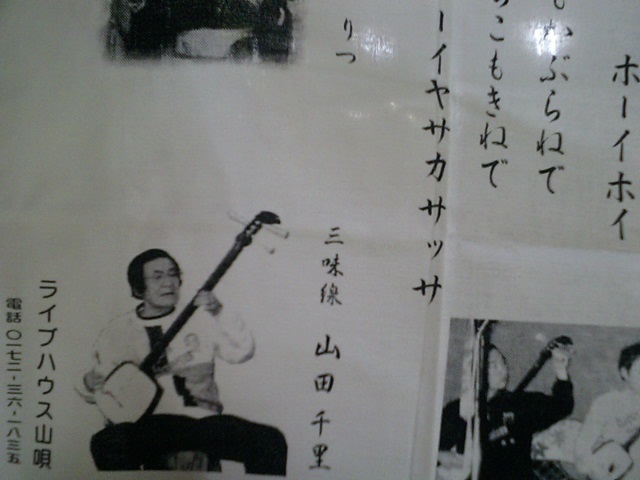 ホーイホイ
かぶらねで
こもきねで
ーイヤサカサッサ
りつ
三味線 山田千里
ライブハウス山唄
電話〇一七二-三六-一八三五